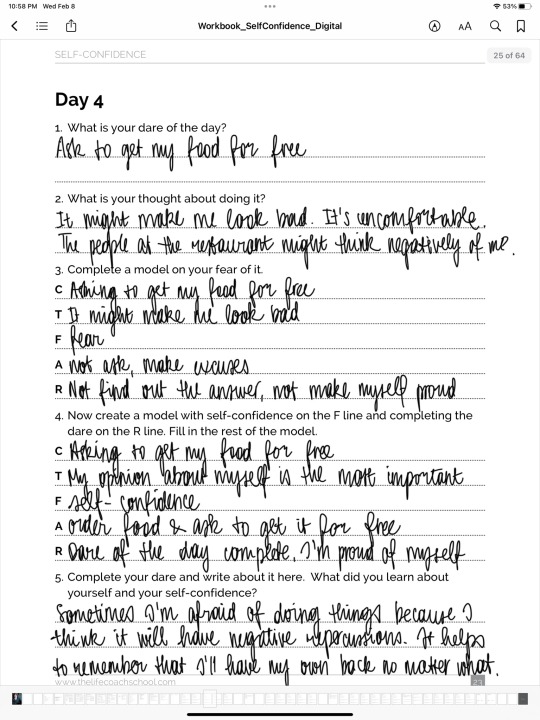 10:58 PM Wed Feb 8
53%
Workbook_SelfConfidence_Digital
AA
SELF-CONFIDENCE
25 of 64
Day 4
1. What is your dare of the day?
Ask to get my food for free
2. What is your thought about doing it?
It might make me look bad. It's uncomfortable.
The people at the restaurant might think negatively of me.
3. Complete a model on your fear of it.
C Asking to get my food for free
T It might make me look bad
F fear
A not ask, make excuses
R Not find out the answer, not make myself proud
4. Now create a model with self-confidence on the F line and completing the
dare on the R line. Fill in the rest of the model.
C Asking to get my food for free
T My opinion about myself is the most important
F self-confidence
A order food & ask to get it for free
R Dare of the day complete. I'm proud of myself
5. Complete your dare and write about it here. What did you learn about
yourself and your self-confidence?
Sometimes I'm afraid of doing things because I
think it will have negative repercussions. It helps
to remember that I'll have my own back no matter what.
www.thelifecoachschool.com
23